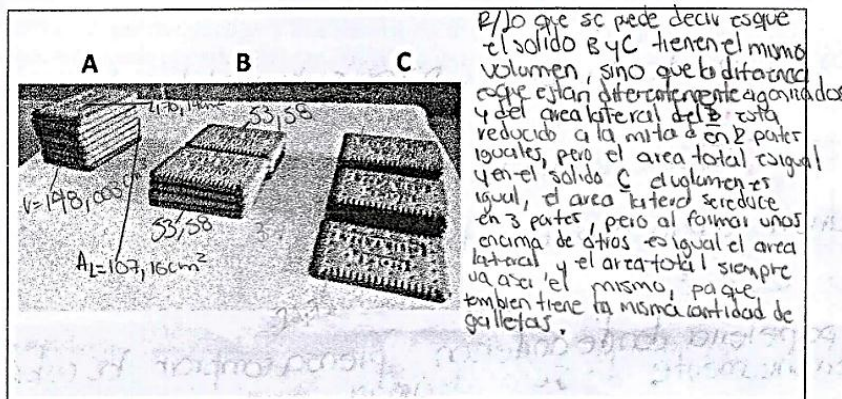 A B C
53,58
V=148,003cm³
53,58
AL=107,16cm²
R/lo que se pede decir esque
el solido B y C tienen el mismo
volumen, sino que la diferencia
esque estan diferentemente
y del area lateral del B esta
reducido a la mitad en 2 partes
iguales, pero el area total es igual
y en el solido C el es
igual, el area lateral se reduce
en 3 partes, pero al formar unos
encima de otros es igual el area
lateral, y el area total siempre
va a ser el mismo, que
tambien tiene la misma cantidad de
galletas.